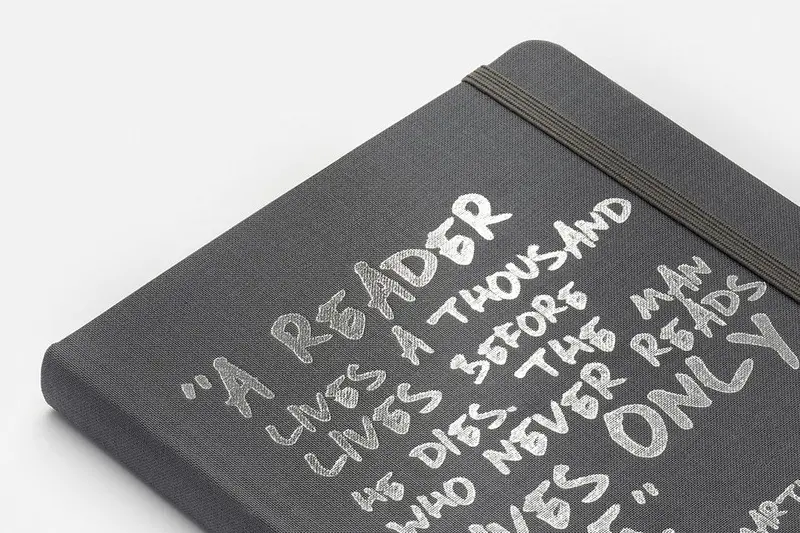 "A READER
LIVES A THOUSAND
LIVES BEFORE
HE DIES. THE MAN
WHO NEVER READS
IVES ONLY